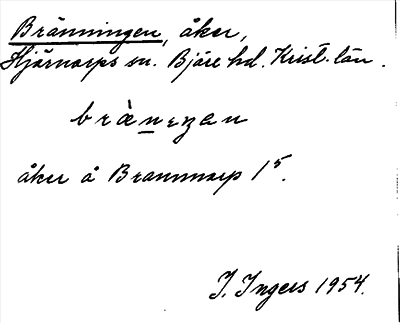 Bränningen, åker,
Hjärnarps sn. Bjäre hd. Krist. län.
åker å Brammarp 1⁵.
I. Ingers 1954.